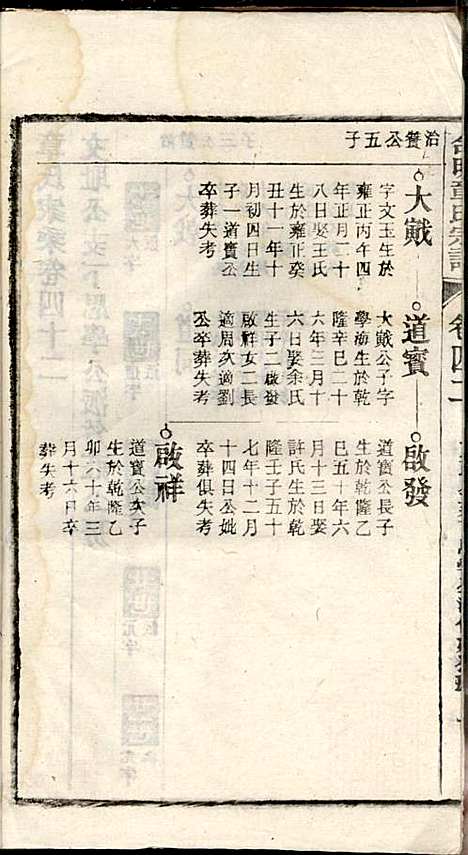 治賓公五子
大戭
字文玉生於
雍正丙午四
年正月二十
八日娶王氏
生於雍正癸
丑十一年十
月初四日生
子一道賓公
卒葬失考
道賓
大戭公子字
學海生於乾
隆辛巳二十
六年三月十
六日娶余氏
生子二啟發
啟祥女二長
適周次適劉
公卒葬失考
啟發
道賓公長子
生於乾隆乙
巳五十年六
月十三日娶
許氏生於乾
隆壬子五十
七年十二月
十四日公妣
卒葬俱失考
啟祥
道賓公次子
生於乾隆乙
卯六十年三
月十六日卒
葬失考
章氏宗譜
卷四十二